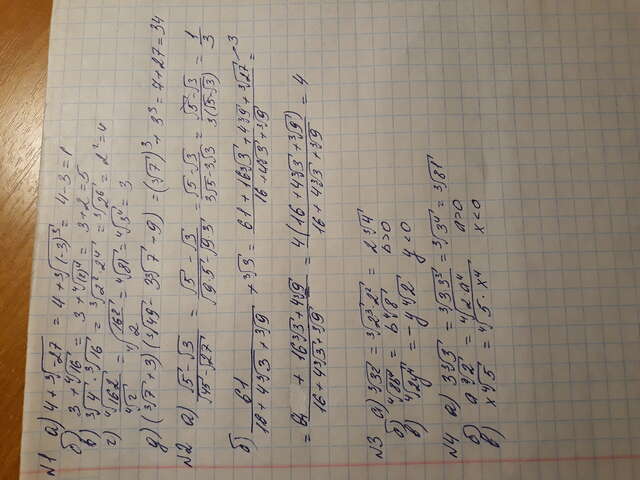 №1 а) 4 + ∛-27 = 4 + ∛(-3)³ = 4 - 3 = 1
б) 3 + ∜16 = 3 + ∜(2)⁴ = 3 + 2 = 5
в) ∛4 · ∛16 = ∛2² · 2⁴ = ∛2⁶ = 2² = 4
г) ∜162 / ∜2 = ∜(162/2) = ∜81 = ∜3⁴ = 3
д) (∛7 + 3)(∛49 - 3∛7 + 9) = (∛7)³ + 3³ = 7 + 27 = 34
№2 а) (√5 - √3)/(√45 - √27) = (√5 - √3)/(√9·5 - √9·3) = (√5 - √3)/(3√5 - 3√3) = (√5 - √3)/(3(√5 - √3)) = 1/3
б) 61/(16 + 4∛3 + ∛9) + ∛3 = (61 + 16∛3 + 4∛9 + ∛27)/(16 + 4∛3 + ∛9) = 3
= (64 + 16∛3 + 4∛9)/(16 + 4∛3 + ∛9) = 4(16 + 4∛3 + ∛9)/(16 + 4∛3 + ∛9) = 4
№3 а) ∛32 = ∛2³ · 2² = 2∛4
б) ∜8b⁴ = b∜8 b > 0
в) ∜2y⁴ = -y∜2 y < 0
№4 а) 3∛3 = ∛3·3³ = ∛3⁴ = ∛81
б) a∜2 = ∜2a⁴ a > 0
в) x∜5 = ∜5 · x⁴ x < 0